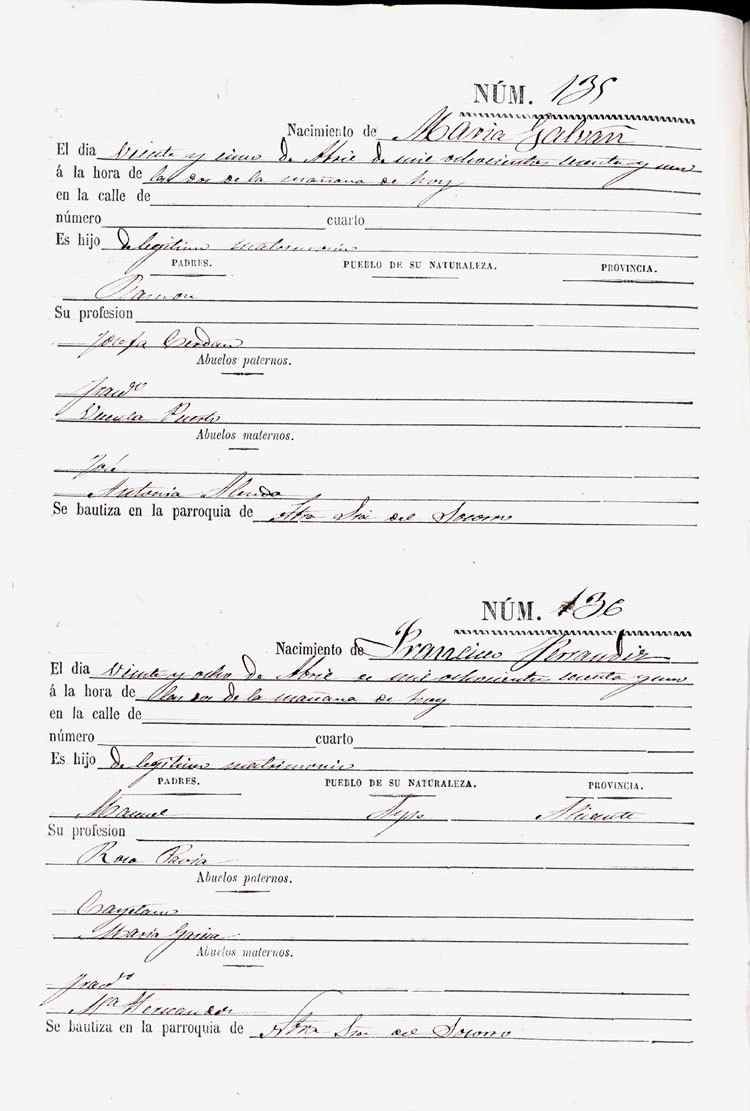 NÚM. 135
Nacimiento de Maria Galvañ
El dia veinte y cinco de Abril de mil ochocientos sesenta y uno
á la hora de las dos de la mañana de hoy
en la calle de
número cuarto
Es hijo de legitimo matrimonio
PADRES. PUEBLO DE SU NATURALEZA. PROVINCIA.
Ramon
Su profesion
Josefa Cerdan
Abuelos paternos.
Franco
Vicenta Puerto
Abuelos maternos.
José
Antonia
Se bautiza en la parroquia de Ntra Sra del Socorro
NÚM. 136
Nacimiento de Francisco Ferrandiz
El dia veinte y ocho de Abril de mil ochocientos sesenta y uno
á la hora de las dos de la mañana de hoy
en la calle de
número cuarto
Es hijo de legitimo matrimonio
PADRES. PUEBLO DE SU NATURALEZA. PROVINCIA.
Manuel Aspe Alicante
Su profesion
Rosa Pavia
Abuelos paternos.
Cayetano
Maria Garcia
Abuelos maternos.
Franco
Ma Hernandez
Se bautiza en la parroquia de Ntra Sra del Socorro